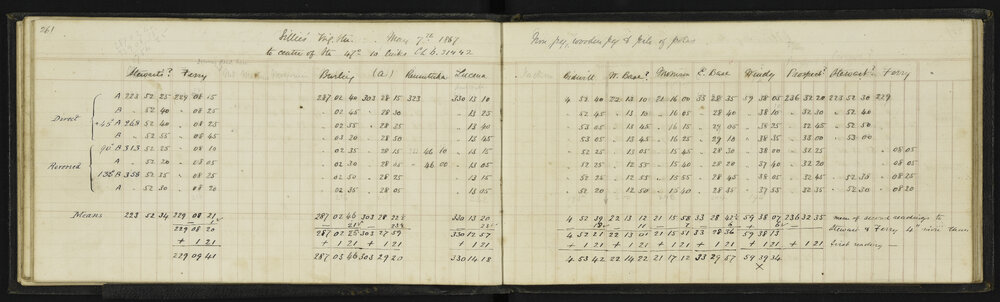 261
Lillies Trig. Stn. May 7th 1867 Iron peg, wooden peg & pile of poles
to centre of Stn 47° 10 links Ch b. 31442
Stewart's? Ferry Burling (a) Rimutaka Lucena Bidwill W. Base? Morrison E. Base Windy Prospect? Stewart? Ferry
A 223 52 25 229 08 15 287 02 40 303 28 15 323 330 13 10 4 52 40 22 13 10 21 16 00 33 28 35 59 38 05 236 32 20 223 52 30 229
Direct B " 52 40 " 08 25 " 02 45 " 28 30 " 13 25 " 52 45 " 13 10 " 16 05 " 28 40 " 38 10 " 32 30 " 52 40
+45° A 268 52 40 " 08 25 " 02 55 " 28 25 " 13 40 " 53 05 " 13 45 " 16 15 " 29 05 " 38 25 " 32 45 " 52 50
B " 52 55 " 08 45 " 03 20 " 28 50 " 13 45 " 53 05 " 13 45 " 16 25 " 29 10 " 38 35 " 33 00 " 53 00
90° B 313 52 25 " 08 10 " 02 35 " 28 15 " 46 10 " 13 15 " 52 25 " 13 05 " 15 45 " 28 30 " 38 00 " 32 25 " 08 05
Reversed A " 52 20 " 08 05 " 02 30 " 28 25 " 46 00 " 13 05 " 52 25 " 12 55 " 15 40 " 28 20 " 57 40 " 32 20 " 08 05
135° B 358 52 25 " 08 25 " 02 50 " 28 25 " 13 15 " 52 25 " 12 55 " 15 55 " 28 45 " 38 05 " 32 45 " 52 35 " 08 25
A " 52 30 " 08 20 " 02 35 " 28 05 " 13 05 " 52 20 " 12 50 " 15 40 " 28 35 " 37 55 " 32 35 " 52 30 " 08 20
Means 223 52 34 229 08 21 287 02 46 303 28 22½ 330 13 20 4 52 39 22 13 12 21 15 58 33 28 42½ 59 38 07 236 32 35 mean of second readings to
229 08 20 287 02 25 303 27 59 330 12 57 4 52 21 22 13 01 21 15 51 33 28 36 59 38 13 Stewart & Ferry 4" more than
+ 1 21 + 1 21 + 1 21 + 1 21 + 1 21 + 1 21 + 1 21 + 1 21 + 1 21 first reading —
229 09 41 287 03 46 303 29 20 330 14 18 4 53 42 22 14 22 21 17 12 33 29 57 59 39 34
×